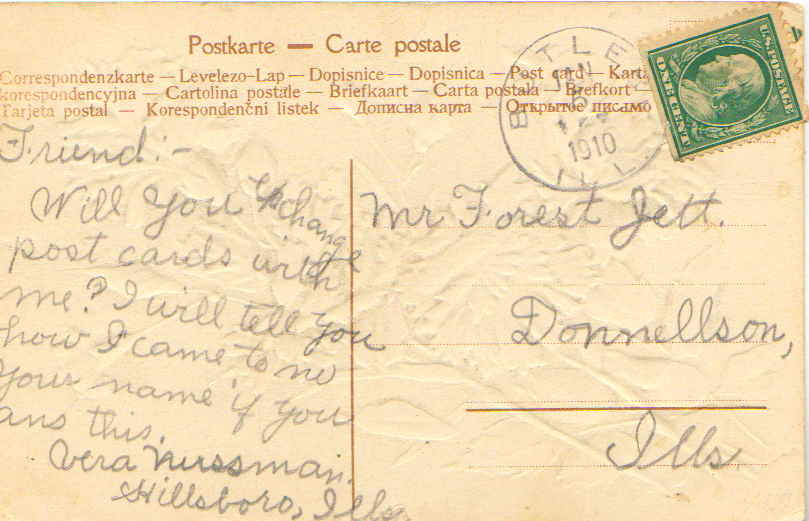 Postkarte — Carte postale
Correspondenzkarte — Levelezo-Lap — Dopisnice — Dopisnica — Post card — Karta
korespondencyjna — Cartolina postale — Briefkaart — Carta postala — Brefkort
Tarjeta postal — Korespondenční listek — Дописна карта — Открытое письмо
JAN
1910
ILL
U.S. POSTAGE
ONE CENT
Friend:-
Will You Exchange
post cards with
me? I will tell you
how I came to no
your name if you
ans this.
Vera Nussman.
Hillsboro, Ills.
Mr Forest Jett.
Donnellson,
Ills